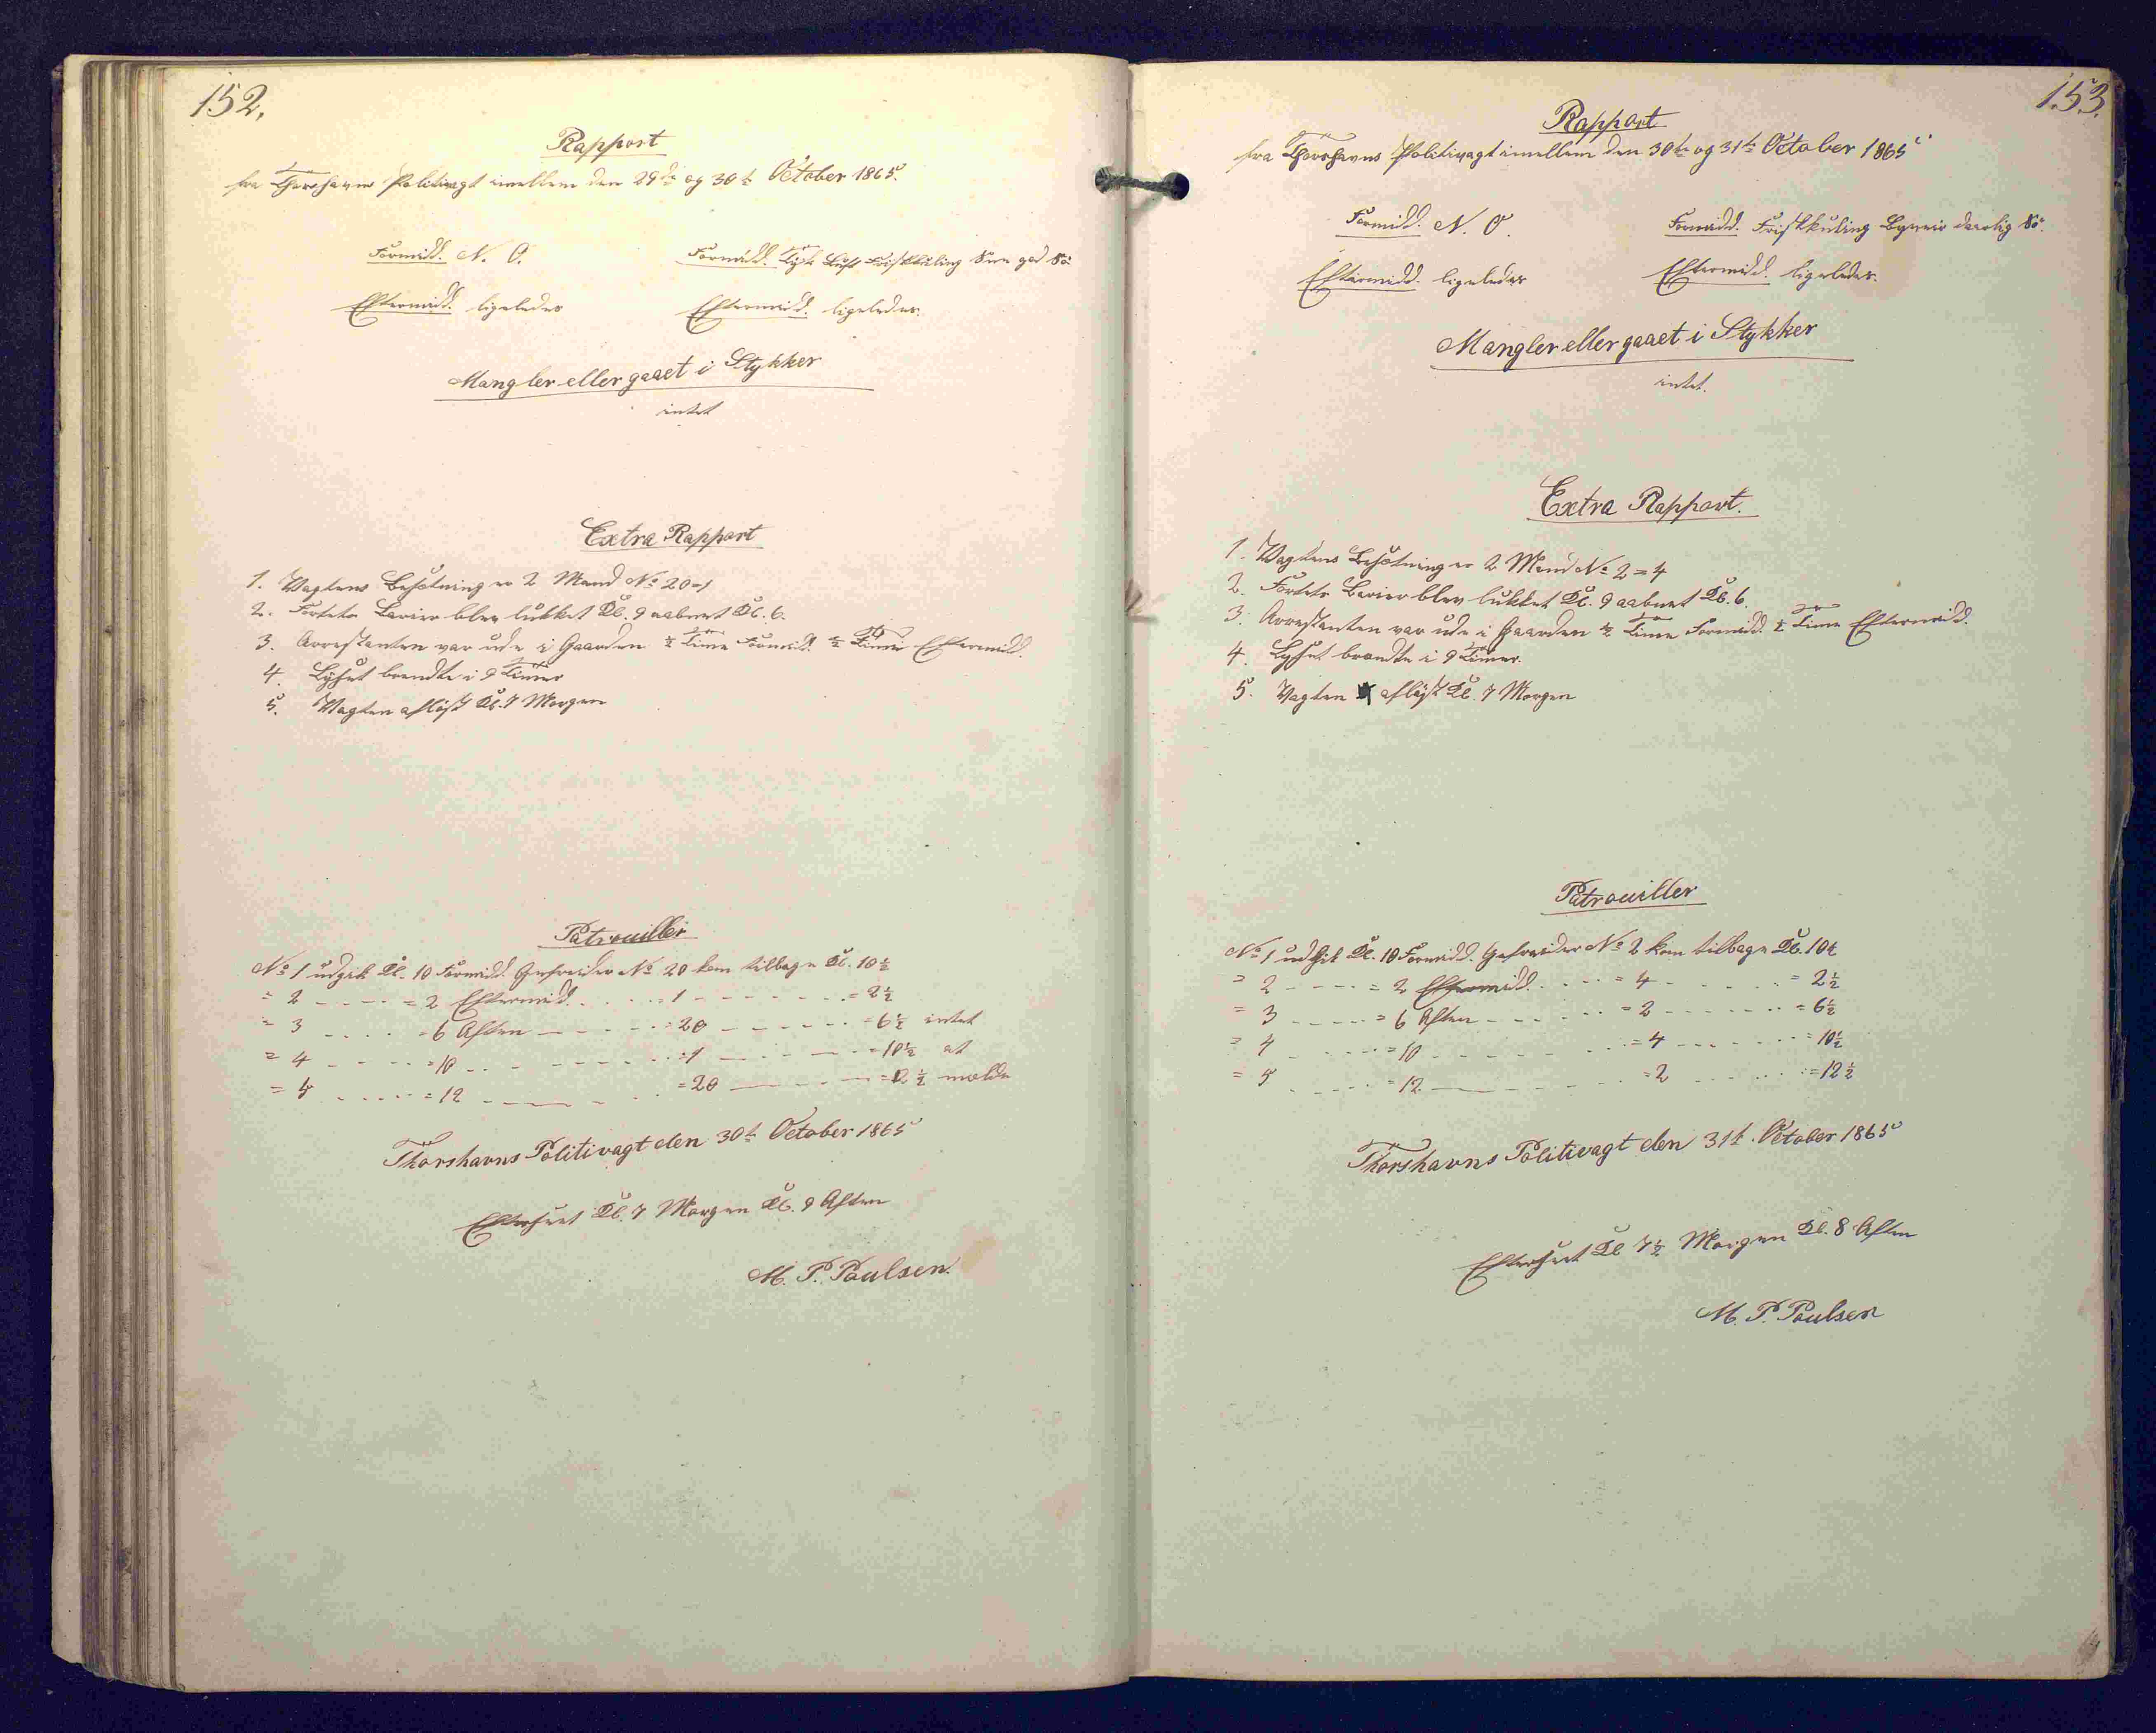 152.
Rapport
fra Thorshavns Politivagt imellem den 29de og 30t October 1865.
Formidd. N. O.
Formidd. Tyk Luft Friskkuling Snee god Sö
Eftermidd. ligeledes
Eftermidd. ligeledes.
Mangler eller gaaet i Stykker
intet
Extra Rappart
1. Vagtens Besætning er 2 Mand No 20=1
2. Fortets Barier blev lukket Kl. 9 aabnet Kl. 6.
3. Arrestanten var ude i Gaarden ½ Time Formidd. ½ Time Eftermidd.
4. Lyset brændte i 9 Timer
5. Vagten aflöst Kl. 7 Morgen
Patrouiller
No 1 udgik Kl. 10 Formidd. Gefreider No 20 kom tilbage Kl. 10½
= 2 - - - - = 2 Eftermidd. - - - = 1 - - - - - - = 2½
= 3 - - - - = 6 Aften - - - - = 20 - - - - - - = 6½ intet
= 4 - - - - = 10 - - - - - - = 1 - - - - - - = 10½ at
= 5 - - - - = 12 - - - - - - = 20 - - - - - - = 12½ melde
Thorshavns Politivagt den 30t October 1865
Efterseet Kl. 7 Morgen Kl. 9 Aften
M. P. Poulsen.
153.
Rappart
fra Thorshavns Politivagt imellem den 30te og 31te October 1865
Formidd. N. O.
Formidd. Friskkuling Byveir daarlig Sö.
Eftermidd. ligeledes
Eftermidd. ligeledes.
Mangler eller gaaet i Stykker
intet.
Extra Rappart.
1. Vagtens Besætning er 2 Mand No 2=4
2. Fortets Barier blev lukket Kl. 9 aabnet Kl. 6.
3. Arrestanten var ude i Gaarden ½ Time Formidd. ½ Time Eftermidd.
4. Lyset brændte i 9 Timer.
5. Vagten aflöst Kl. 7 Morgen
Patrouiller
No 1 udgik Kl. 10 Formidd. Gefreider No 2 kom tilbage Kl. 10½
= 2 - - - - = 2 Eftermidd. - - - = 4 - - - - - = 2½
= 3 - - - - = 6 Aften - - - - = 2 - - - - - = 6½
= 4 - - - - = 10 - - - - - - = 4 - - - - - = 10½
= 5 - - - - = 12 - - - - - - = 2 - - - - - = 12½
Thorshavns Politivagt den 31t. October 1865
Efterseet Kl 7½ Morgen Kl. 8 Aften
M. P. Poulsen